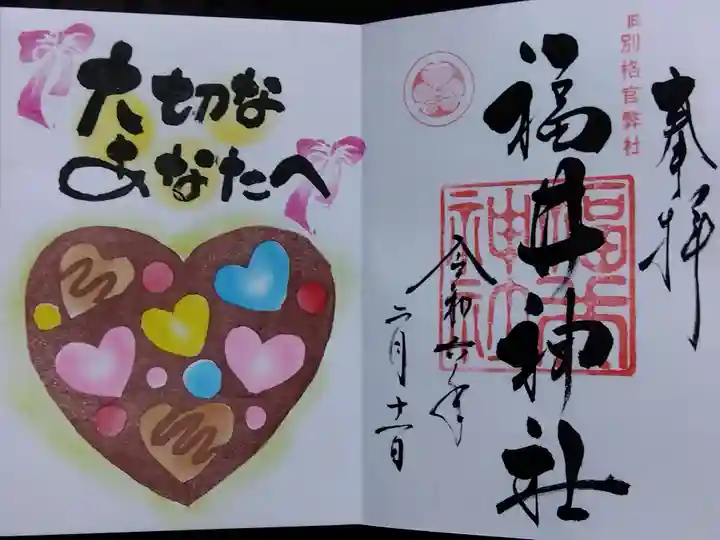 大切な
あなたへ
奉拝
旧別格官弊社
福井神社
福井
神社
令和六年
二月十一日